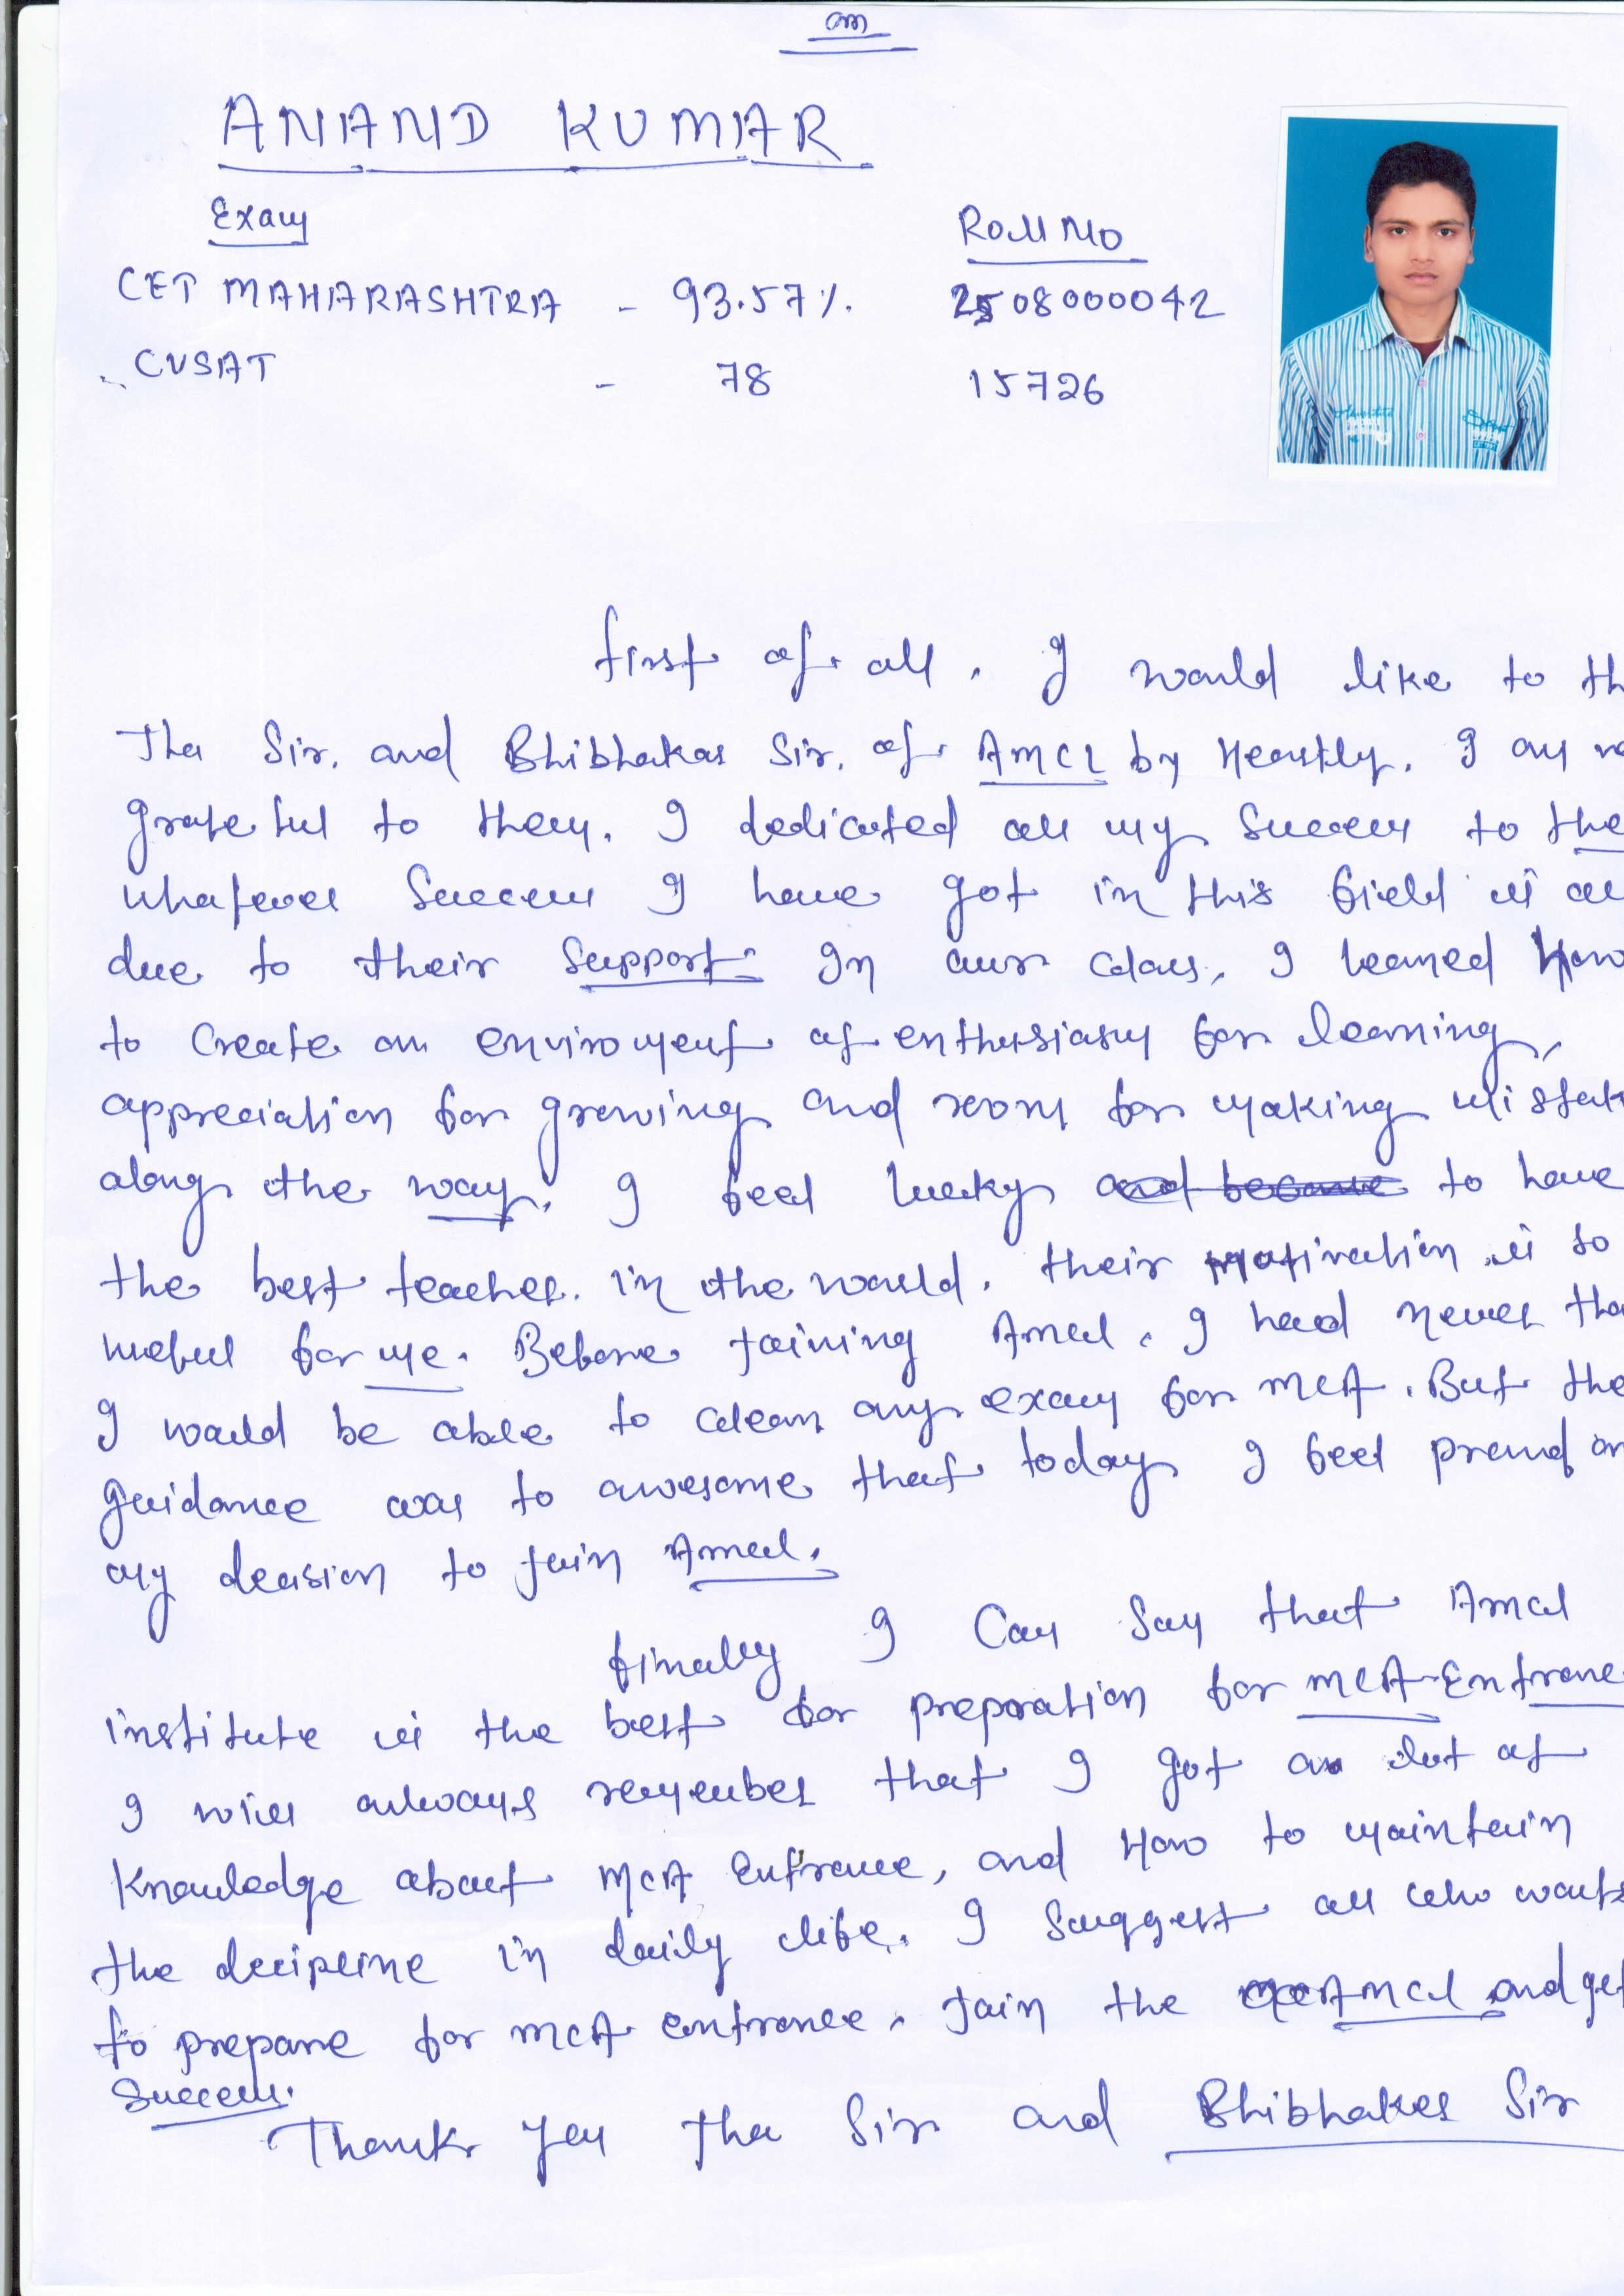 om
ANAND KUMAR
Exam Roll No
CET MAHARASHTRA - 93.57%. 2508000042
CUSAT - 78 15726
first of all. I would like to th
Jha Sir. and Bhibhakar Sir. of AMCL by Heartly. I am ve
grateful to them. I dedicated all my success to the
whatever success I have got in this field is all
due to their support. In our class, I learned How
to create an enviroment of enthusiasm for learning,
appreciation for growing and room for making mistak
along the way. I feel lucky and became to have
the best teacher. in the world. their motivation is so
useful for me. Before joining Amcl. I had never tho
I would be able to clear any exam for MCA. But the
guidance was to awesome that today I feel proud on
my decision to join Amcl.
finally I Can Say that Amcl
institute is the best for preparation for MCA-Entrance
I will always remember that I got a lot of
Knowledge about MCA Entrance, and How to maintain
the decipline in daily life. I suggest all who wants
to prepare for MCA entrance. Join the AMCL and get
Success.
Thank you Jha Sir and Bhibhaker Sir